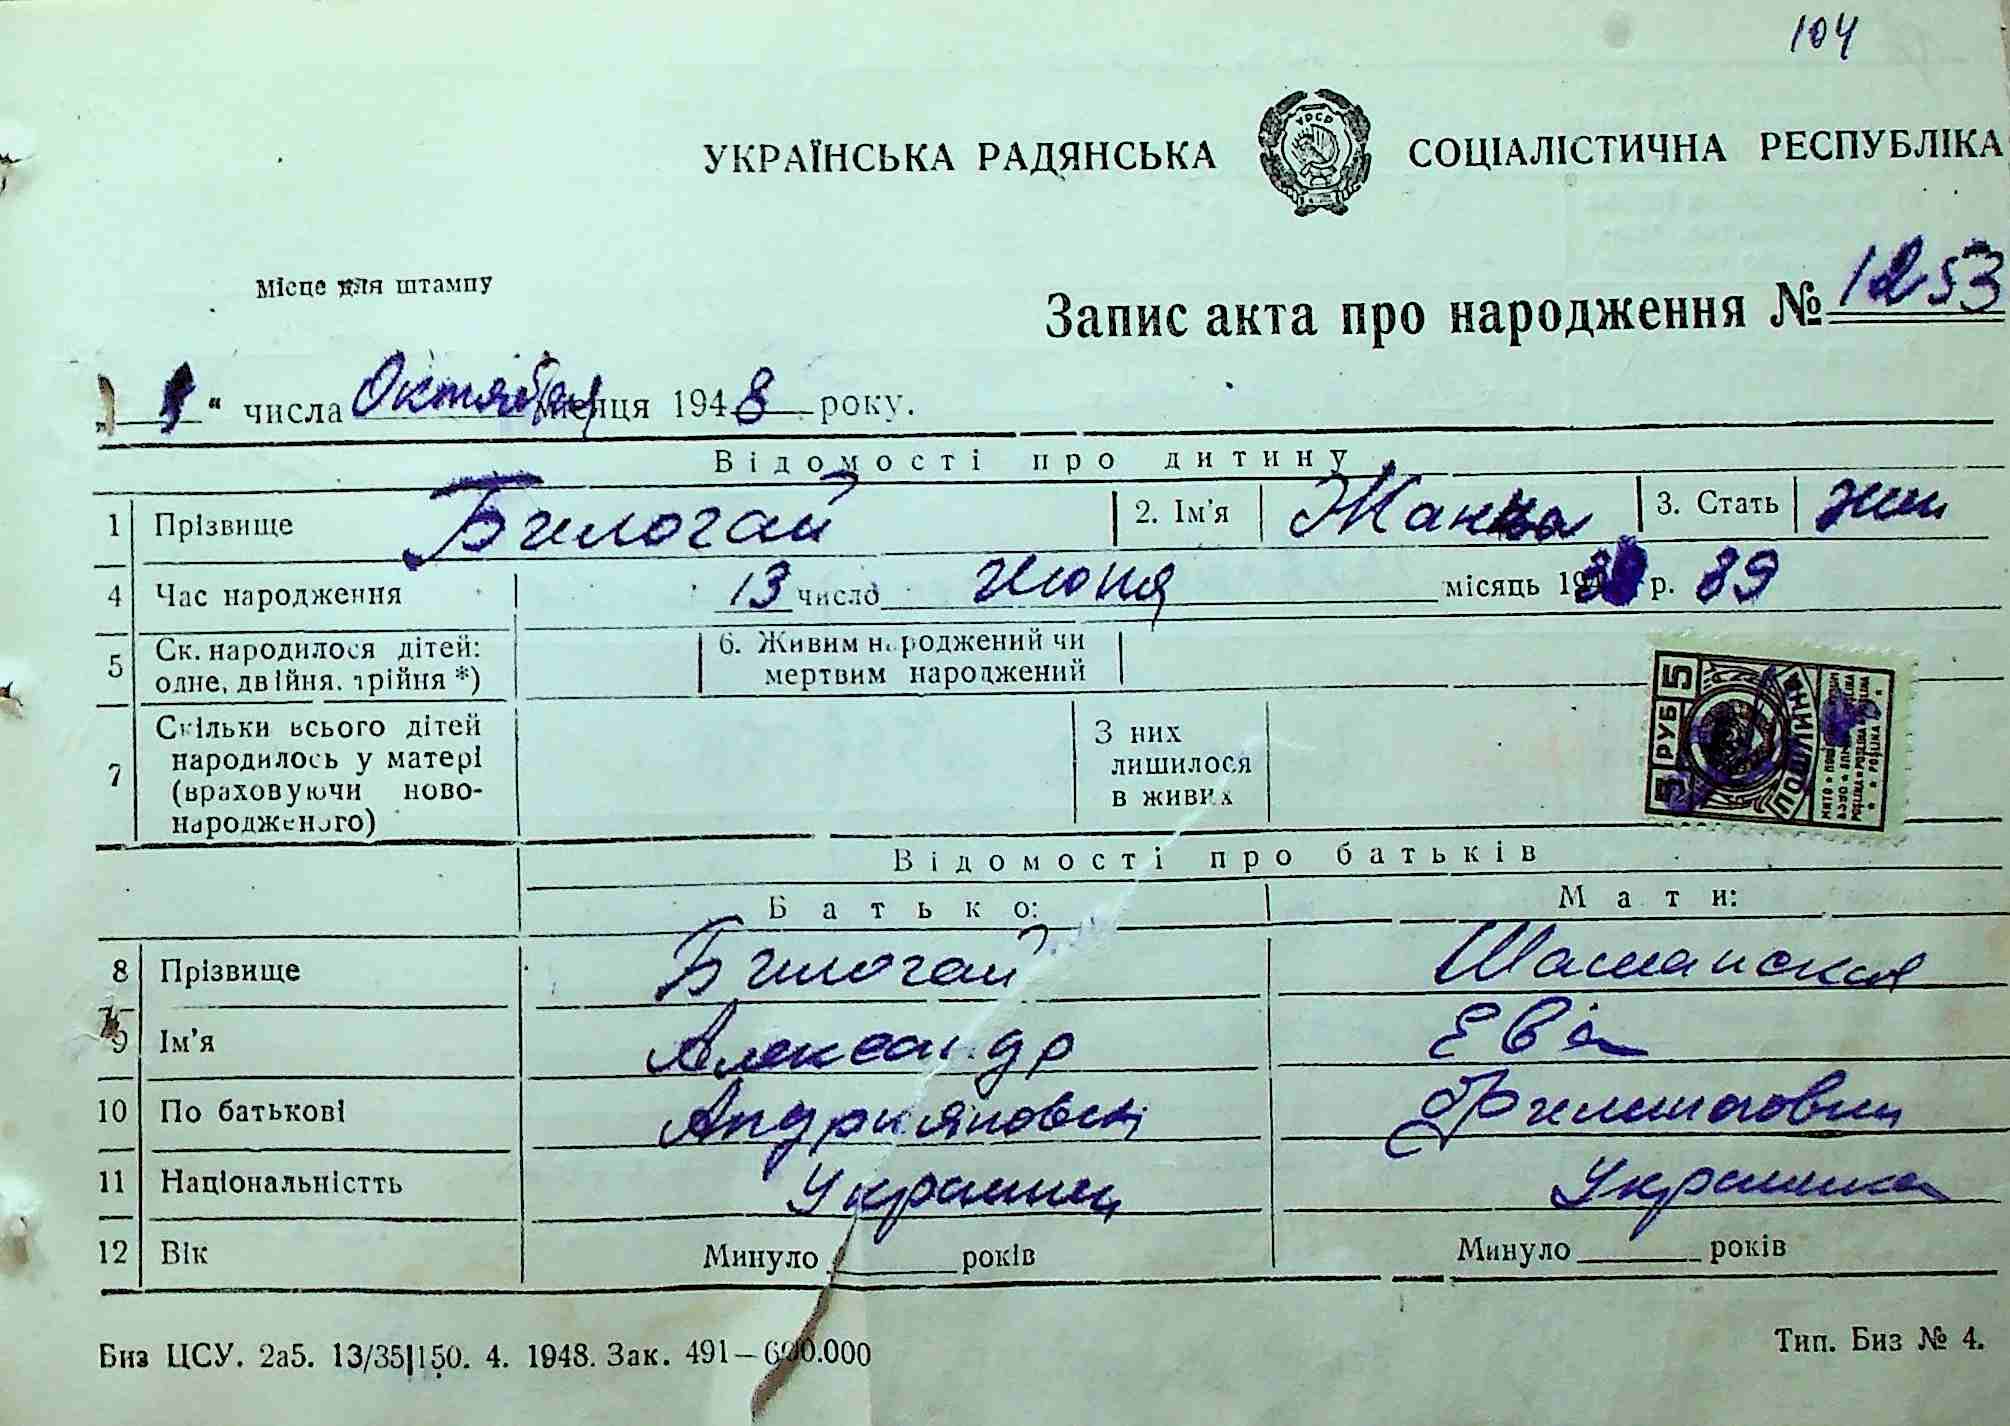 104
УКРАЇНСЬКА РАДЯНСЬКА СОЦІАЛІСТИЧНА РЕСПУБЛІКА
УРСР
Місце для штампу
Запис акта про народження № 1253
„ " числа Октября місяця 1948 року.
Відомості про дитину
1 Прізвище Билогай 2. Ім'я Жанна 3. Стать жен
4 Час народження 13 число июня місяць 19 р. 39
5 Ск. народилося дітей: одне, двійня, трійня *) 6. Живим народжений чи мертвим народжений
7 Скільки всього дітей народилось у матері (враховуючи новонародженого) З них лишилося в живих
5 РУБ 5
ПОШЛИНА
Відомості про батьків
Батько: Мати:
8 Прізвище Билогай Шаманская
9 Ім'я Александр Ева
10 По батькові Андрияновыч
11 Національністть Украинец Украинка
12 Вік Минуло років Минуло років
Биз ЦСУ. 2а5. 13/35|150. 4. 1948. Зак. 491—600.000 Тип. Биз № 4.